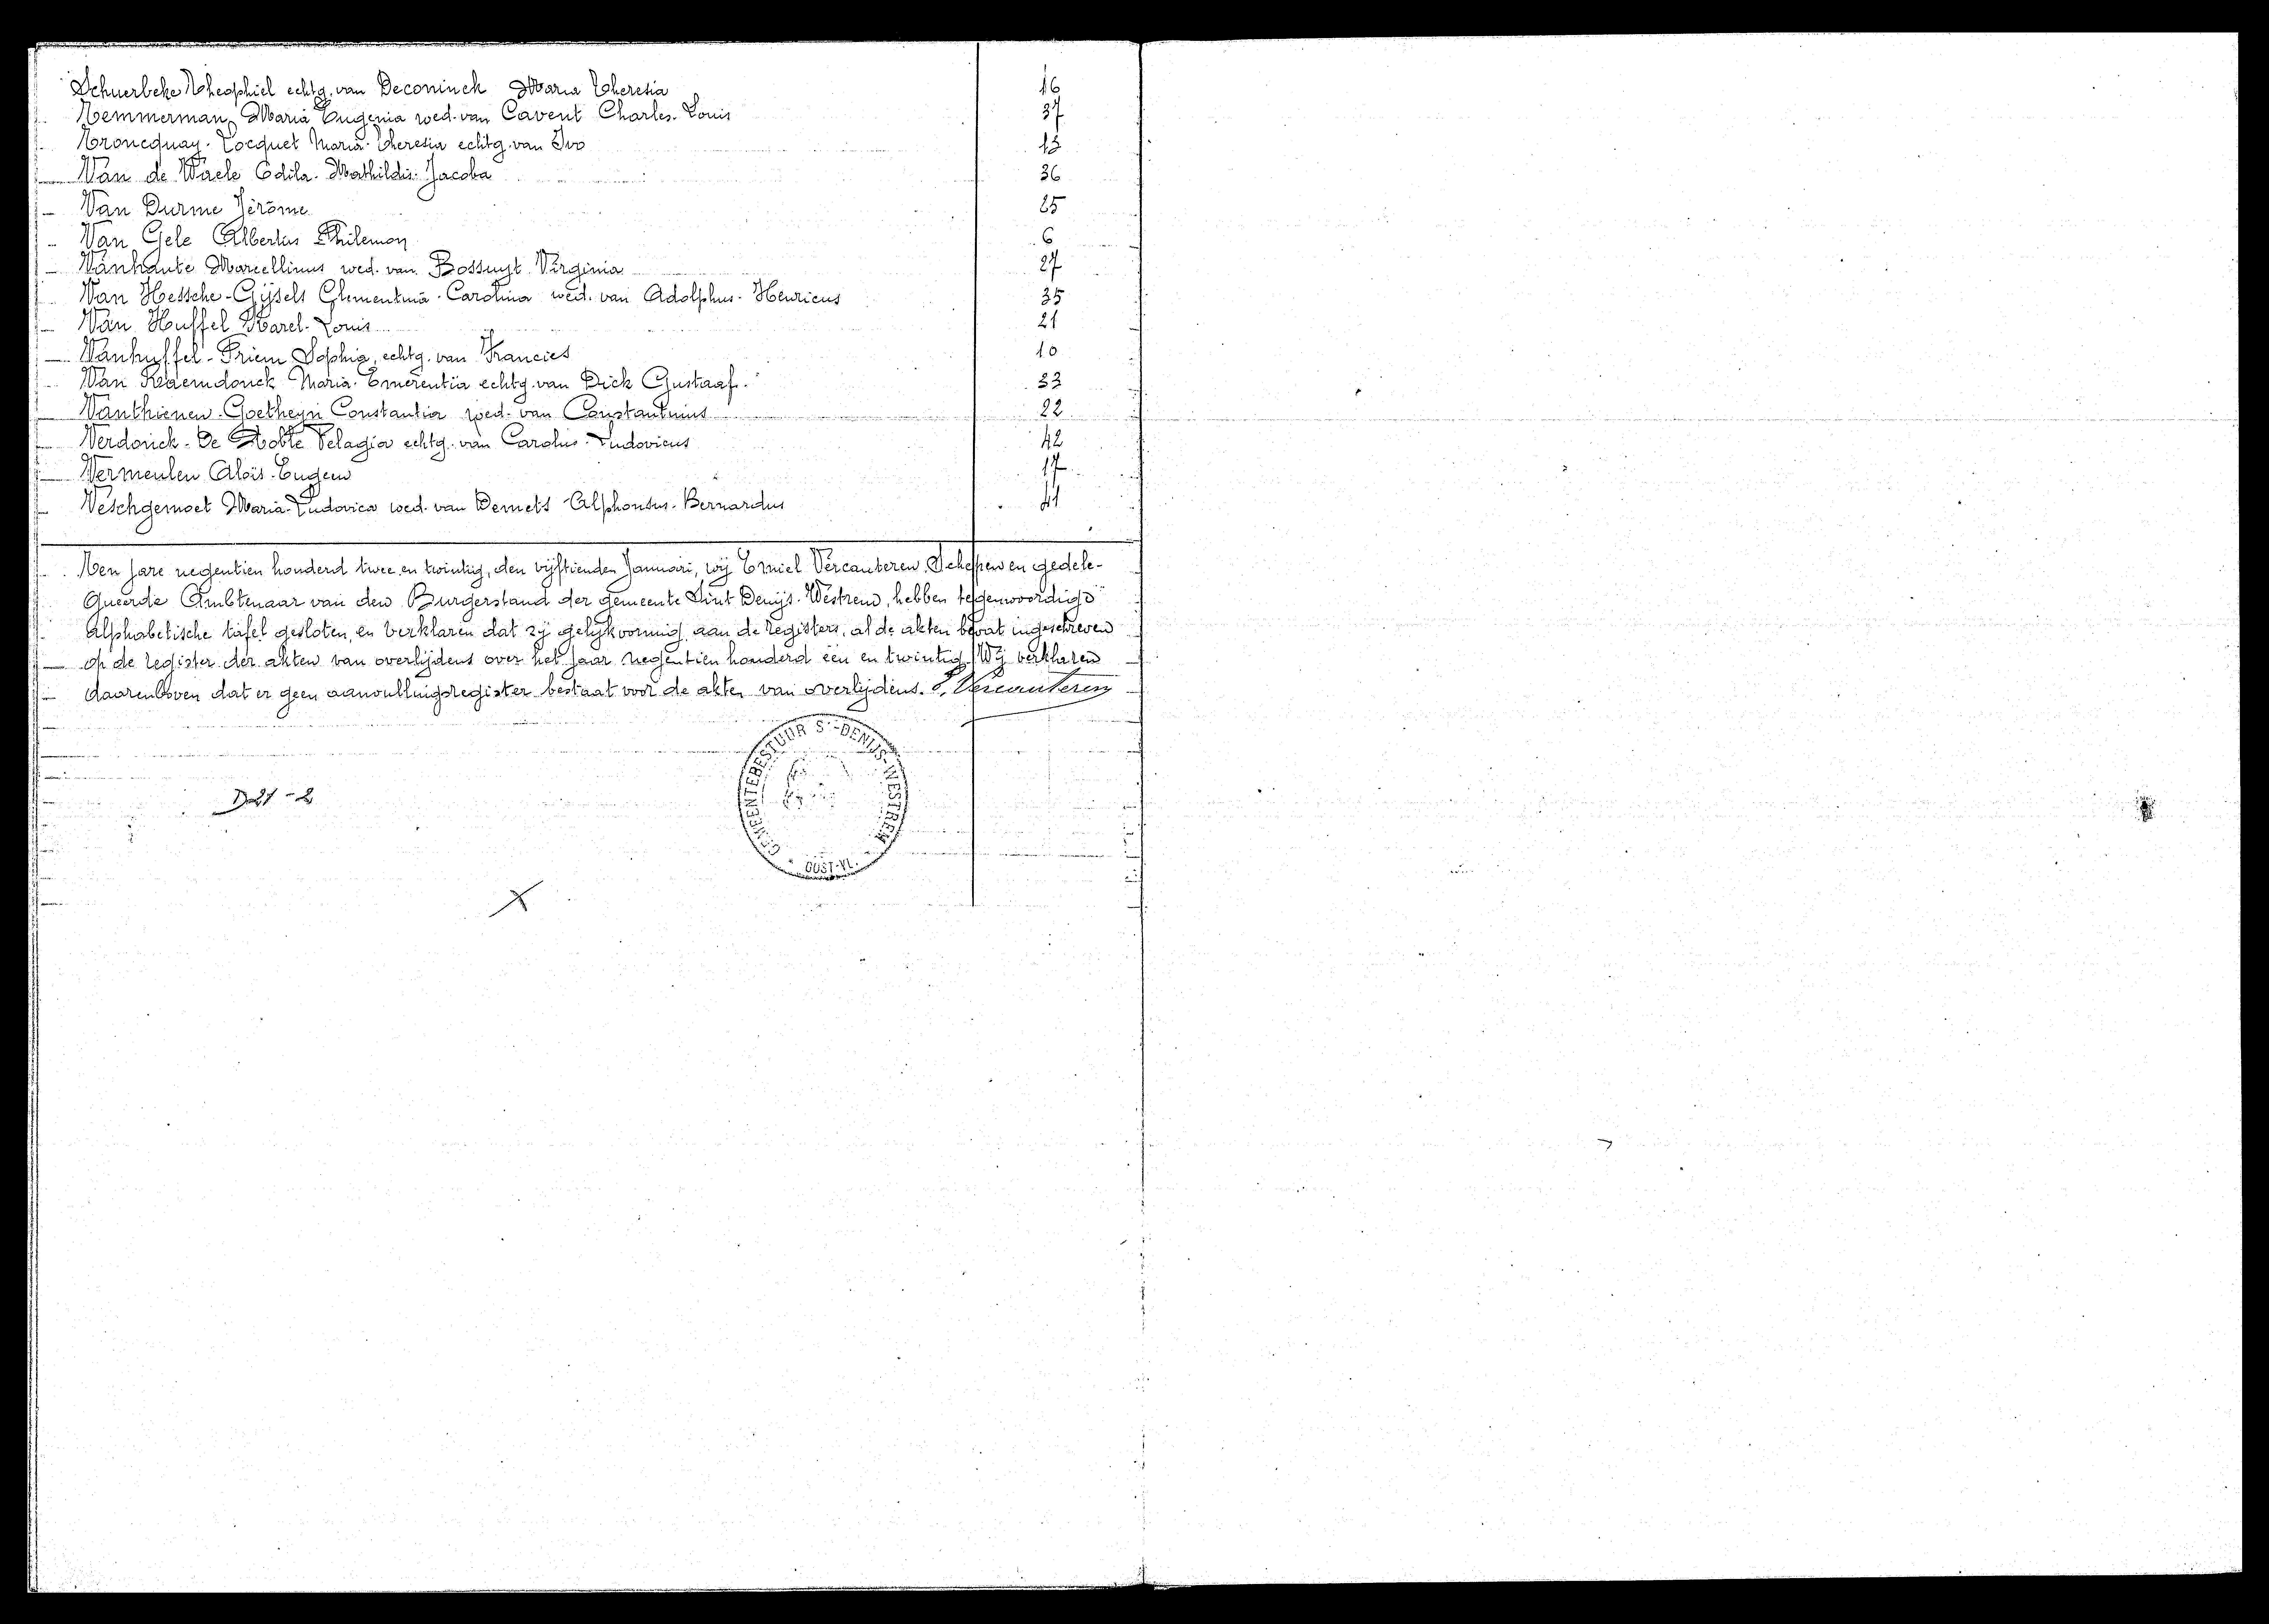 Schuerbeke Theophiel echtg. van Deconinck Maria Theresia 16
Temmerman Maria Eugenia wed. van Cavent Charles-Louis 37
Troncquay-Locquet Maria-Theresia echtg. van Ivo 13
Van de Wiele Edila-Mathildis-Jacoba 36
Van Durme Jérôme 25
Van Gele Albertus Philemon 6
Vanhaute Marcellinus wed. van Bossuyt Virginia 27
Van Hessche-Gijsels Clementina-Carolina wed. van Adolphus-Henricus 35
Van Huffel Karel-Louis 21
Vanhuffel-Priem Sophia, echtg. van Francies 10
Van Raemdonck Maria-Emerentia echtg. van Dick Gustaaf. 33
Vanthienen-Goetheyn Constantia wed. van Constantinus 22
Verdonck-De Pelagia echtg. van Carolus-Ludovicus 42
Vermeulen Aloïs-Eugeen 17
Veschgemoet Maria-Ludovica wed. van Demets Alphonsus-Bernardus 41
Ten jare negentien honderd twee en twintig, den vijftienden Januari, wij Emiel Vercauteren, Schepen en gedele-
gueerde Ambtenaar van den Burgerstand der gemeente Sint Denijs-Westrem, hebben tegenwoordige
alphabetische tafel gesloten, en verklaren dat zij gelijkvormig aan de registers, al de akten bevat ingeschreven
op de register der akten van overlijdens over het jaar negentien honderd een en twintig. Wij verklaren
daarenboven dat er geen aanvullingsregister bestaat voor de akten van overlijdens. E. Vercauteren
GEMEENTEBESTUUR St-DENIJS-WESTREM
OOST-VL.
D21-2
X